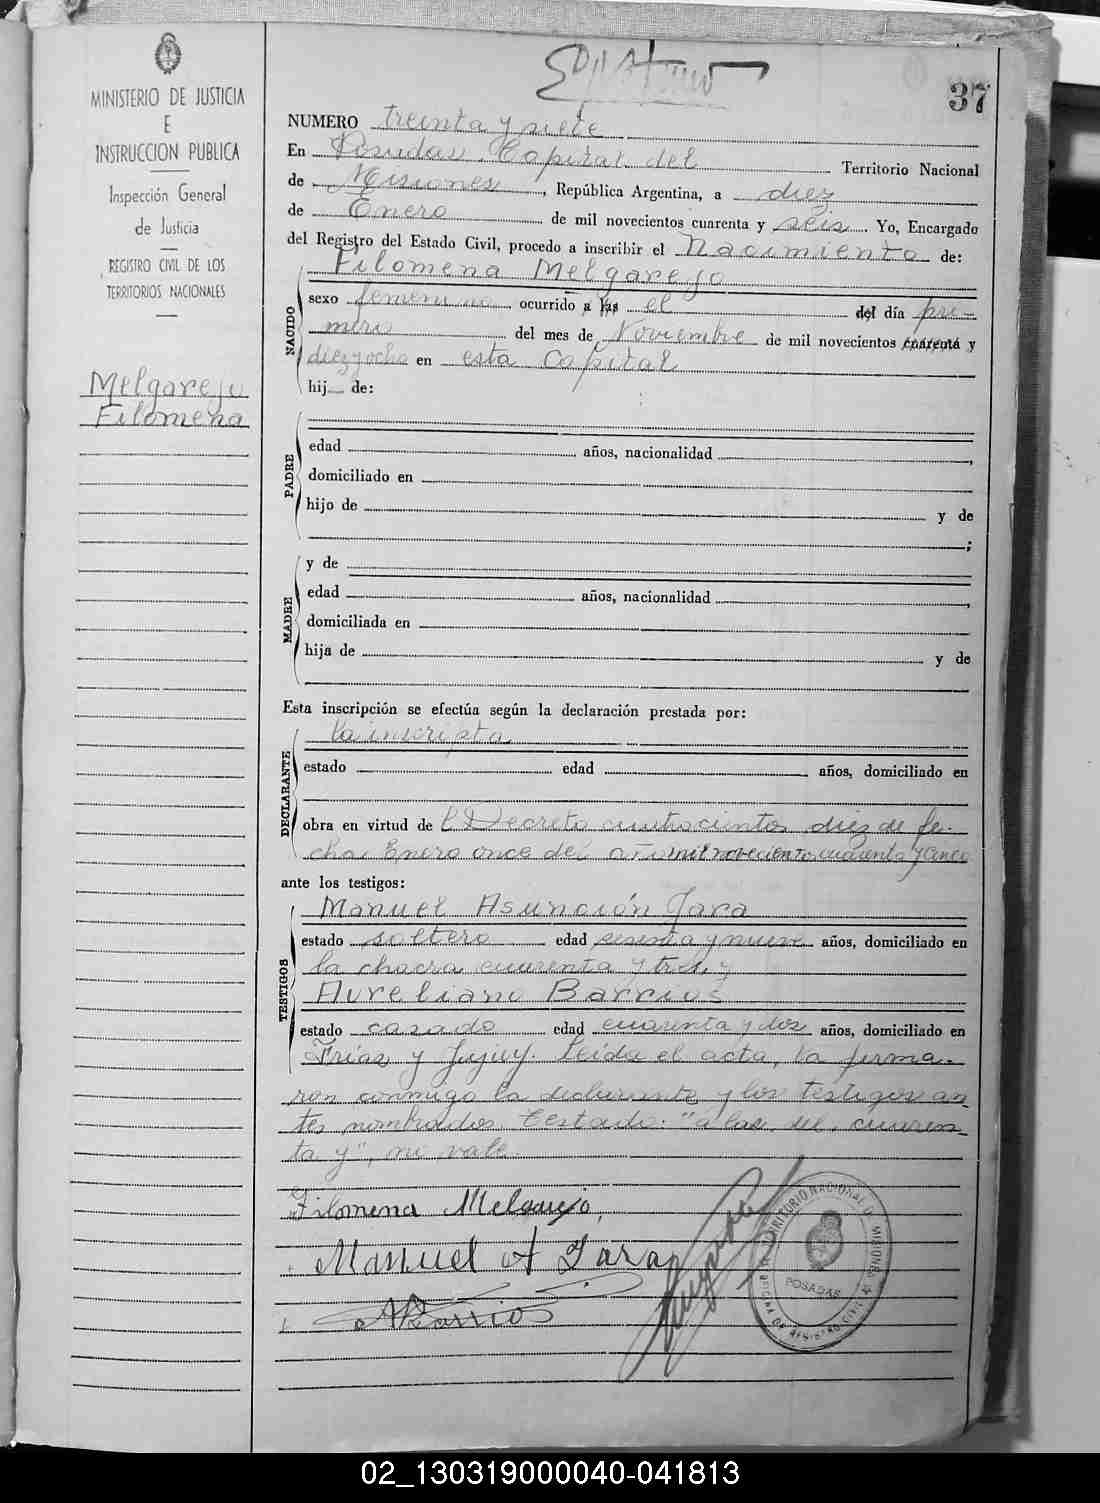 37
MINISTERIO DE JUSTICIA
E
INSTRUCCION PUBLICA
Inspección General
de Justicia
REGISTRO CIVIL DE LOS
TERRITORIOS NACIONALES
Melgarejo
Filomena
NUMERO treinta y siete
En Posadas, Capital del Territorio Nacional
de Misiones, República Argentina, a diez
de Enero de mil novecientos cuarenta y seis. Yo, Encargado
del Registro del Estado Civil, procedo a inscribir el Nacimiento de:
Filomena Melgarejo
NACIDO
sexo femenino ocurrido a las el del día pri-
mero del mes de Noviembre de mil novecientos cuarenta y
diez y ocho en esta Capital
hij de:
PADRE
edad años, nacionalidad ,
domiciliado en
hijo de y de
;
MADRE
y de
edad años, nacionalidad ,
domiciliada en
hija de y de
Esta inscripción se efectúa según la declaración prestada por:
DECLARANTE
la inscripta
estado edad años, domiciliado en
obra en virtud de l Decreto cuatrocientos diez de fe-
cha Enero once del año mil novecientos cuarenta y cinco
ante los testigos:
TESTIGOS
Manuel Asunción Jara
estado soltero edad sesenta y nueve años, domiciliado en
la chacra cuarenta y tres, y
Aureliano Barrios
estado casado edad cuarenta y dos años, domiciliado en
Frías y Jujuy. Leída el acta, la firma-
ron conmigo la declarante y los testigos an-
tes nombrados. Testado: "a las, del, cuaren-
ta y", no vale.
Filomena Melgarejo
Manuel A Jara
A Barrios
POSADAS
02_130319000040-041813